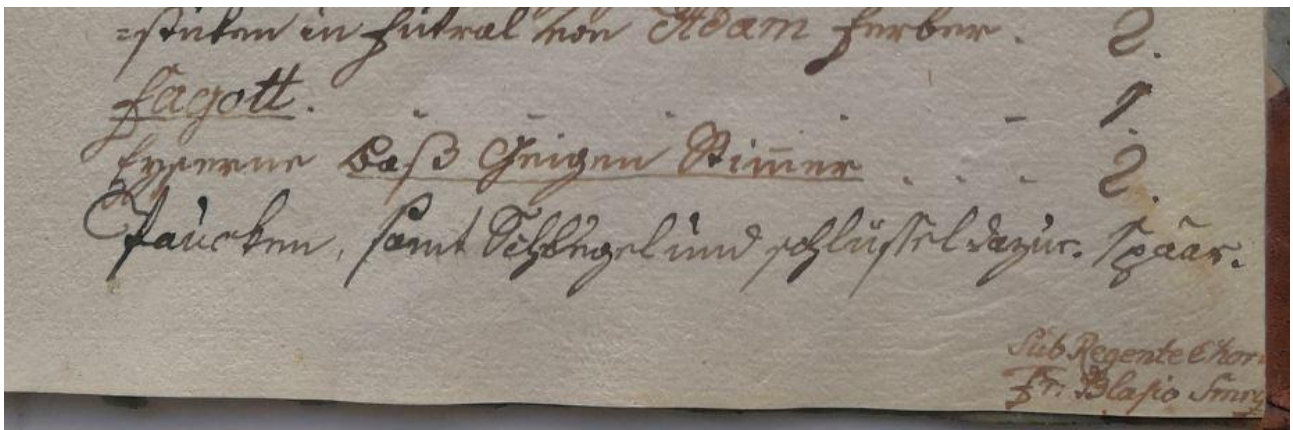 =stuken in Futral von Adam Ferber. 2.
Fagott. . - . . - 1.
Eyserne Baß Geigen Stimer . . - 2.
Paucken, samt Schlegel und schlüssel dazu. 1 paar.
Sub Regente Chori
Fr. Blasio